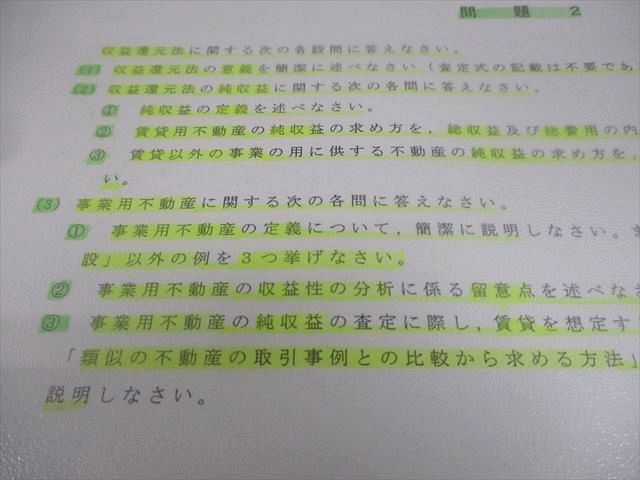 問題 2
収益還元法に関する次の各設問に答えなさい。
(1) 収益還元法の意義を簡潔に述べなさい(査定式の記載は不要であ
(2) 収益還元法の純収益に関する次の各問に答えなさい。
① 純収益の定義を述べなさい。
② 賃貸用不動産の純収益の求め方を,総収益及び総費用の内
③ 賃貸以外の事業の用に供する不動産の純収益の求め方を,
い。
(3) 事業用不動産に関する次の各問に答えなさい。
① 事業用不動産の定義について,簡潔に説明しなさい。
設」以外の例を3つ挙げなさい。
② 事業用不動産の収益性の分析に係る留意点を述べな
③ 事業用不動産の純収益の査定に際し,賃貸を想定す
「類似の不動産の取引事例との比較から求める方法」
説明しなさい。